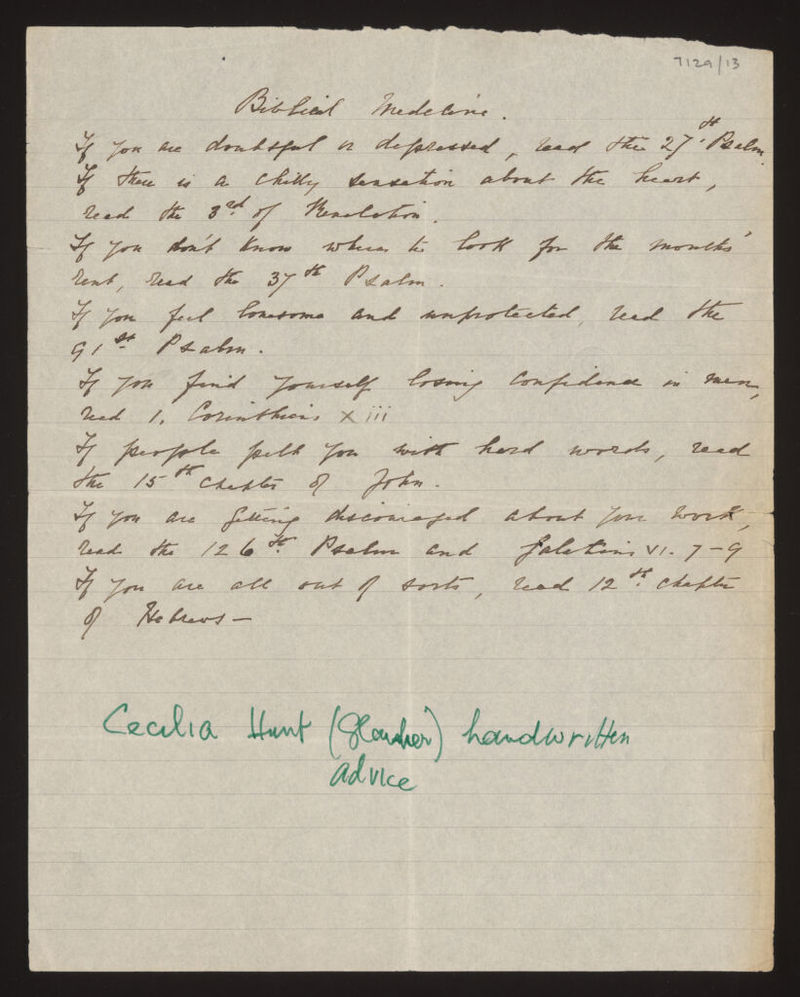 7129/13
Biblical Medecine.
If you are doubtful or depressed, read the 27th Psalm.
If there is a chilly sensation about the heart,
read the 3rd of Revelation.
If you don't know where to look for the months'
rent, read the 37th Psalm.
If you feel lonesome and unprotected, read the
91st Psalm.
If you find yourself losing confidence in men,
read 1. Corinthians xiii
If people pelt you with hard words, read
the 15th chapter of John.
If you are getting discouraged about your work,
read the 126th Psalm and Galatians VI. 7-9
If you are all out of sorts, read 12th chapter
of Hebrews —
Cecilia Hunt ( ) handwritten
advice